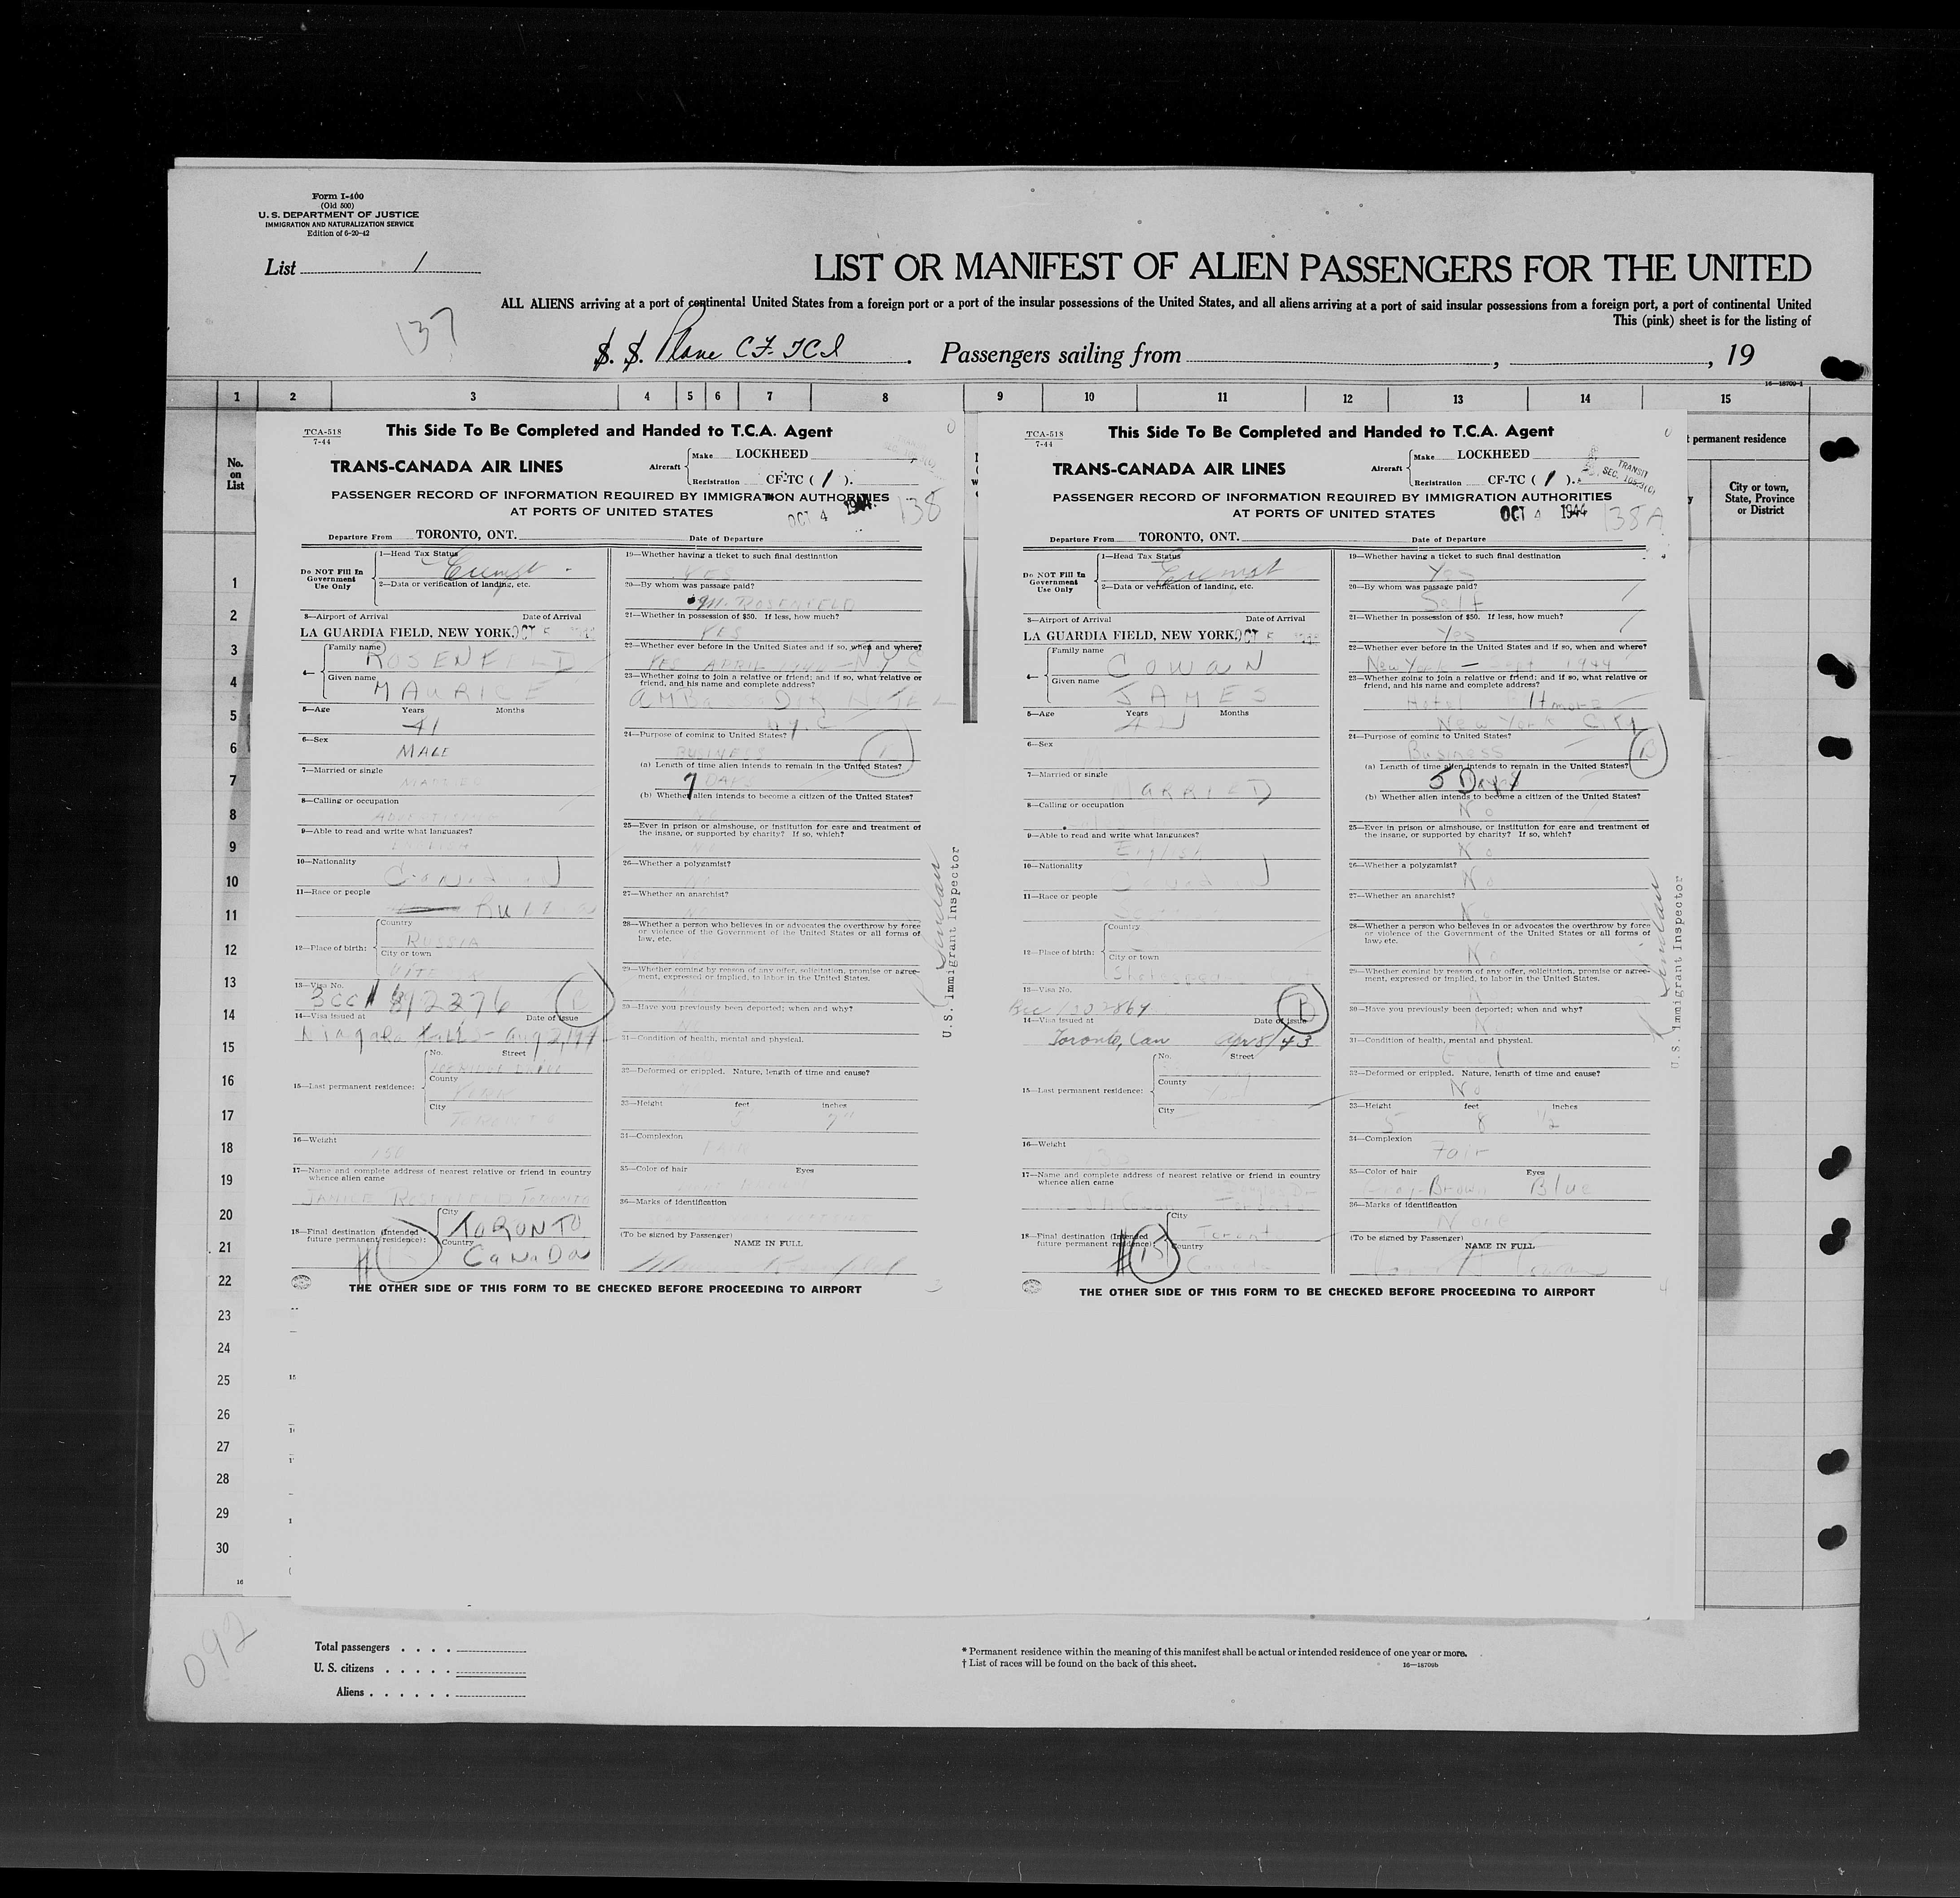 Form I-400
(Old 500)
U. S. DEPARTMENT OF JUSTICE
IMMIGRATION AND NATURALIZATION SERVICE
Edition of 6-20-42
List 1
LIST OR MANIFEST OF ALIEN PASSENGERS FOR THE UNITED
ALL ALIENS arriving at a port of continental United States from a foreign port or a port of the insular possessions of the United States, and all aliens arriving at a port of said insular possessions from a foreign port, a port of continental United
This (pink) sheet is for the listing of
137
S. S. Plane CF-TCI . Passengers sailing from , , 19
16—18709-1
1 2 3 4 5 6 7 8 9 10 11 12 13 14 15
No. on List
permanent residence
City or town, State, Province or District
TCA-518
7-44
This Side To Be Completed and Handed to T.C.A. Agent
TRANS-CANADA AIR LINES
Aircraft Make LOCKHEED
Registration CF-TC ( 1 ).
PASSENGER RECORD OF INFORMATION REQUIRED BY IMMIGRATION AUTHORITIES
AT PORTS OF UNITED STATES
OCT 4 1944
138
Departure From TORONTO, ONT. Date of Departure
Do NOT Fill In Government Use Only
1—Head Tax Status Exempt
2—Data or verification of landing, etc.
3—Airport of Arrival Date of Arrival
LA GUARDIA FIELD, NEW YORK. OCT 5
4— Family name ROSENFELD
Given name MAURICE
5—Age Years Months
41
6—Sex
MALE
7—Married or single
MARRIED
8—Calling or occupation
ADVERTISING
9—Able to read and write what languages?
ENGLISH
10—Nationality
11—Race or people
12—Place of birth: Country
RUSSIA
City or town
13—Visa No.
14—Visa issued at Date of Issue
Niagara Falls - Aug 2/44
15—Last permanent residence: No. Street
County
YORK
City
TORONTO
16—Weight
150
17—Name and complete address of nearest relative or friend in country whence alien came
JANICE ROSENFELD TORONTO
18—Final destination (Intended future permanent residence): City
TORONTO
Country
CANADA
19—Whether having a ticket to such final destination
YES
20—By whom was passage paid?
M. ROSENFELD
21—Whether in possession of $50. If less, how much?
YES
22—Whether ever before in the United States and if so, when and where?
YES APRIL 1944 - N.Y.C
23—Whether going to join a relative or friend; and if so, what relative or friend, and his name and complete address?
N.Y.C
24—Purpose of coming to United States?
BUSINESS
(a) Length of time alien intends to remain in the United States?
7 DAYS
(b) Whether alien intends to become a citizen of the United States?
25—Ever in prison or almshouse, or institution for care and treatment of the insane, or supported by charity? If so, which?
NO
26—Whether a polygamist?
27—Whether an anarchist?
28—Whether a person who believes in or advocates the overthrow by force or violence of the Government of the United States or all forms of law, etc.
29—Whether coming by reason of any offer, solicitation, promise or agreement, expressed or implied, to labor in the United States.
30—Have you previously been deported; when and why?
31—Condition of health, mental and physical.
32—Deformed or crippled. Nature, length of time and cause?
33—Height feet inches
5 7"
34—Complexion
FAIR
35—Color of hair Eyes
36—Marks of identification
(To be signed by Passenger)
NAME IN FULL
THE OTHER SIDE OF THIS FORM TO BE CHECKED BEFORE PROCEEDING TO AIRPORT
U.S. Immigrant Inspector
TCA-518
7-44
This Side To Be Completed and Handed to T.C.A. Agent
TRANS-CANADA AIR LINES
Aircraft Make LOCKHEED
Registration CF-TC ( 1 ).
TRANSIT
PASSENGER RECORD OF INFORMATION REQUIRED BY IMMIGRATION AUTHORITIES
AT PORTS OF UNITED STATES
OCT 4 1944
138A
Departure From TORONTO, ONT. Date of Departure
Do NOT Fill In Government Use Only
1—Head Tax Status Exempt
2—Data or verification of landing, etc.
3—Airport of Arrival Date of Arrival
LA GUARDIA FIELD, NEW YORK. OCT 5
4— Family name COWAN
Given name JAMES
5—Age Years Months
6—Sex
7—Married or single
MARRIED
8—Calling or occupation
9—Able to read and write what languages?
English
10—Nationality
11—Race or people
12—Place of birth: Country
City or town
13—Visa No.
14—Visa issued at Date of Issue
Toronto, Can Apr 8/43
15—Last permanent residence: No. Street
County
York
City
16—Weight
17—Name and complete address of nearest relative or friend in country whence alien came
18—Final destination (Intended future permanent residence): City
Toronto
Country
Canada
19—Whether having a ticket to such final destination
Yes
20—By whom was passage paid?
Self
21—Whether in possession of $50. If less, how much?
Yes
22—Whether ever before in the United States and if so, when and where?
New York — Sept 1944
23—Whether going to join a relative or friend; and if so, what relative or friend, and his name and complete address?
Hotel Biltmore
New York City
24—Purpose of coming to United States?
Business
(a) Length of time alien intends to remain in the United States?
5 Days
(b) Whether alien intends to become a citizen of the United States?
No
25—Ever in prison or almshouse, or institution for care and treatment of the insane, or supported by charity? If so, which?
No
26—Whether a polygamist?
No
27—Whether an anarchist?
No
28—Whether a person who believes in or advocates the overthrow by force or violence of the Government of the United States or all forms of law, etc.
No
29—Whether coming by reason of any offer, solicitation, promise or agreement, expressed or implied, to labor in the United States.
30—Have you previously been deported; when and why?
No
31—Condition of health, mental and physical.
32—Deformed or crippled. Nature, length of time and cause?
No
33—Height feet inches
5 8 1/2
34—Complexion
Fair
35—Color of hair Eyes
Gray-Brown Blue
36—Marks of identification
None
(To be signed by Passenger)
NAME IN FULL
THE OTHER SIDE OF THIS FORM TO BE CHECKED BEFORE PROCEEDING TO AIRPORT
U.S. Immigrant Inspector
1
2
3
4
5
6
7
8
9
10
11
12
13
14
15
16
17
18
19
20
21
22
23
24
25
26
27
28
29
30
092
Total passengers
U. S. citizens
Aliens
* Permanent residence within the meaning of this manifest shall be actual or intended residence of one year or more.
† List of races will be found on the back of this sheet.
16—18709b